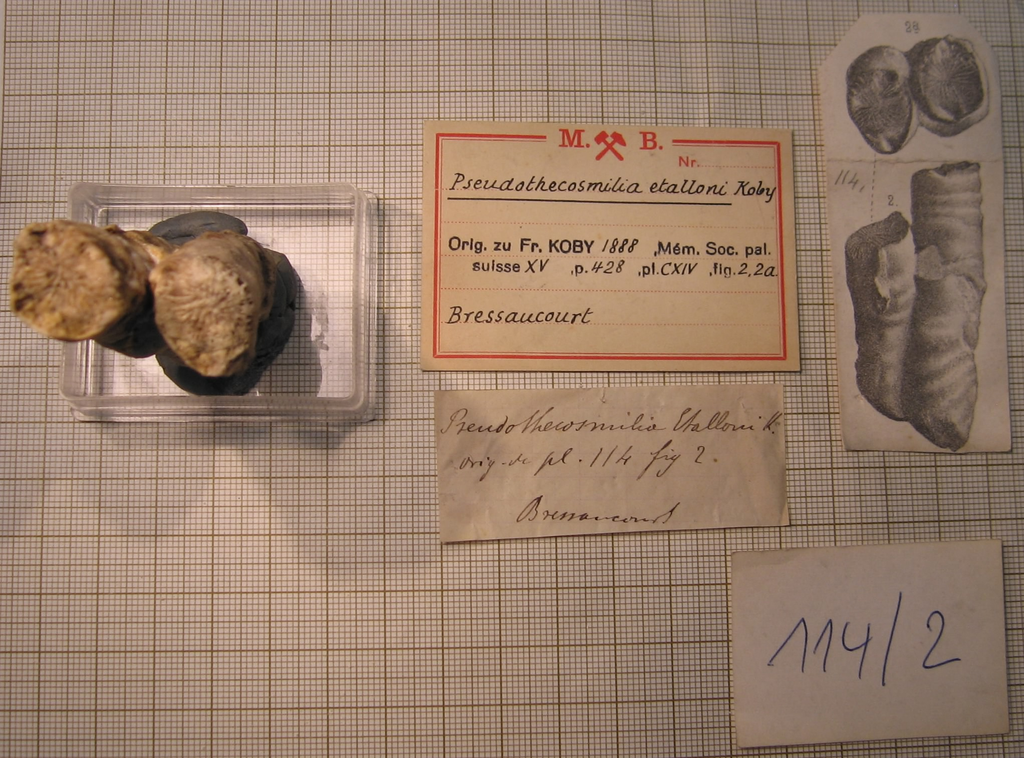 M. B.
Nr.
Pseudothecosmilia etalloni Koby
Orig. zu Fr. KOBY 1888 , Mém. Soc. pal.
suisse XV , p. 428 , pl. CXIV , fig. 2, 2a
Bressaucourt
Pseudothecosmilia Etalloni K.
orig. de pl. 114 fig 2.
Bressaucourt
2a
114,
2.
114/2